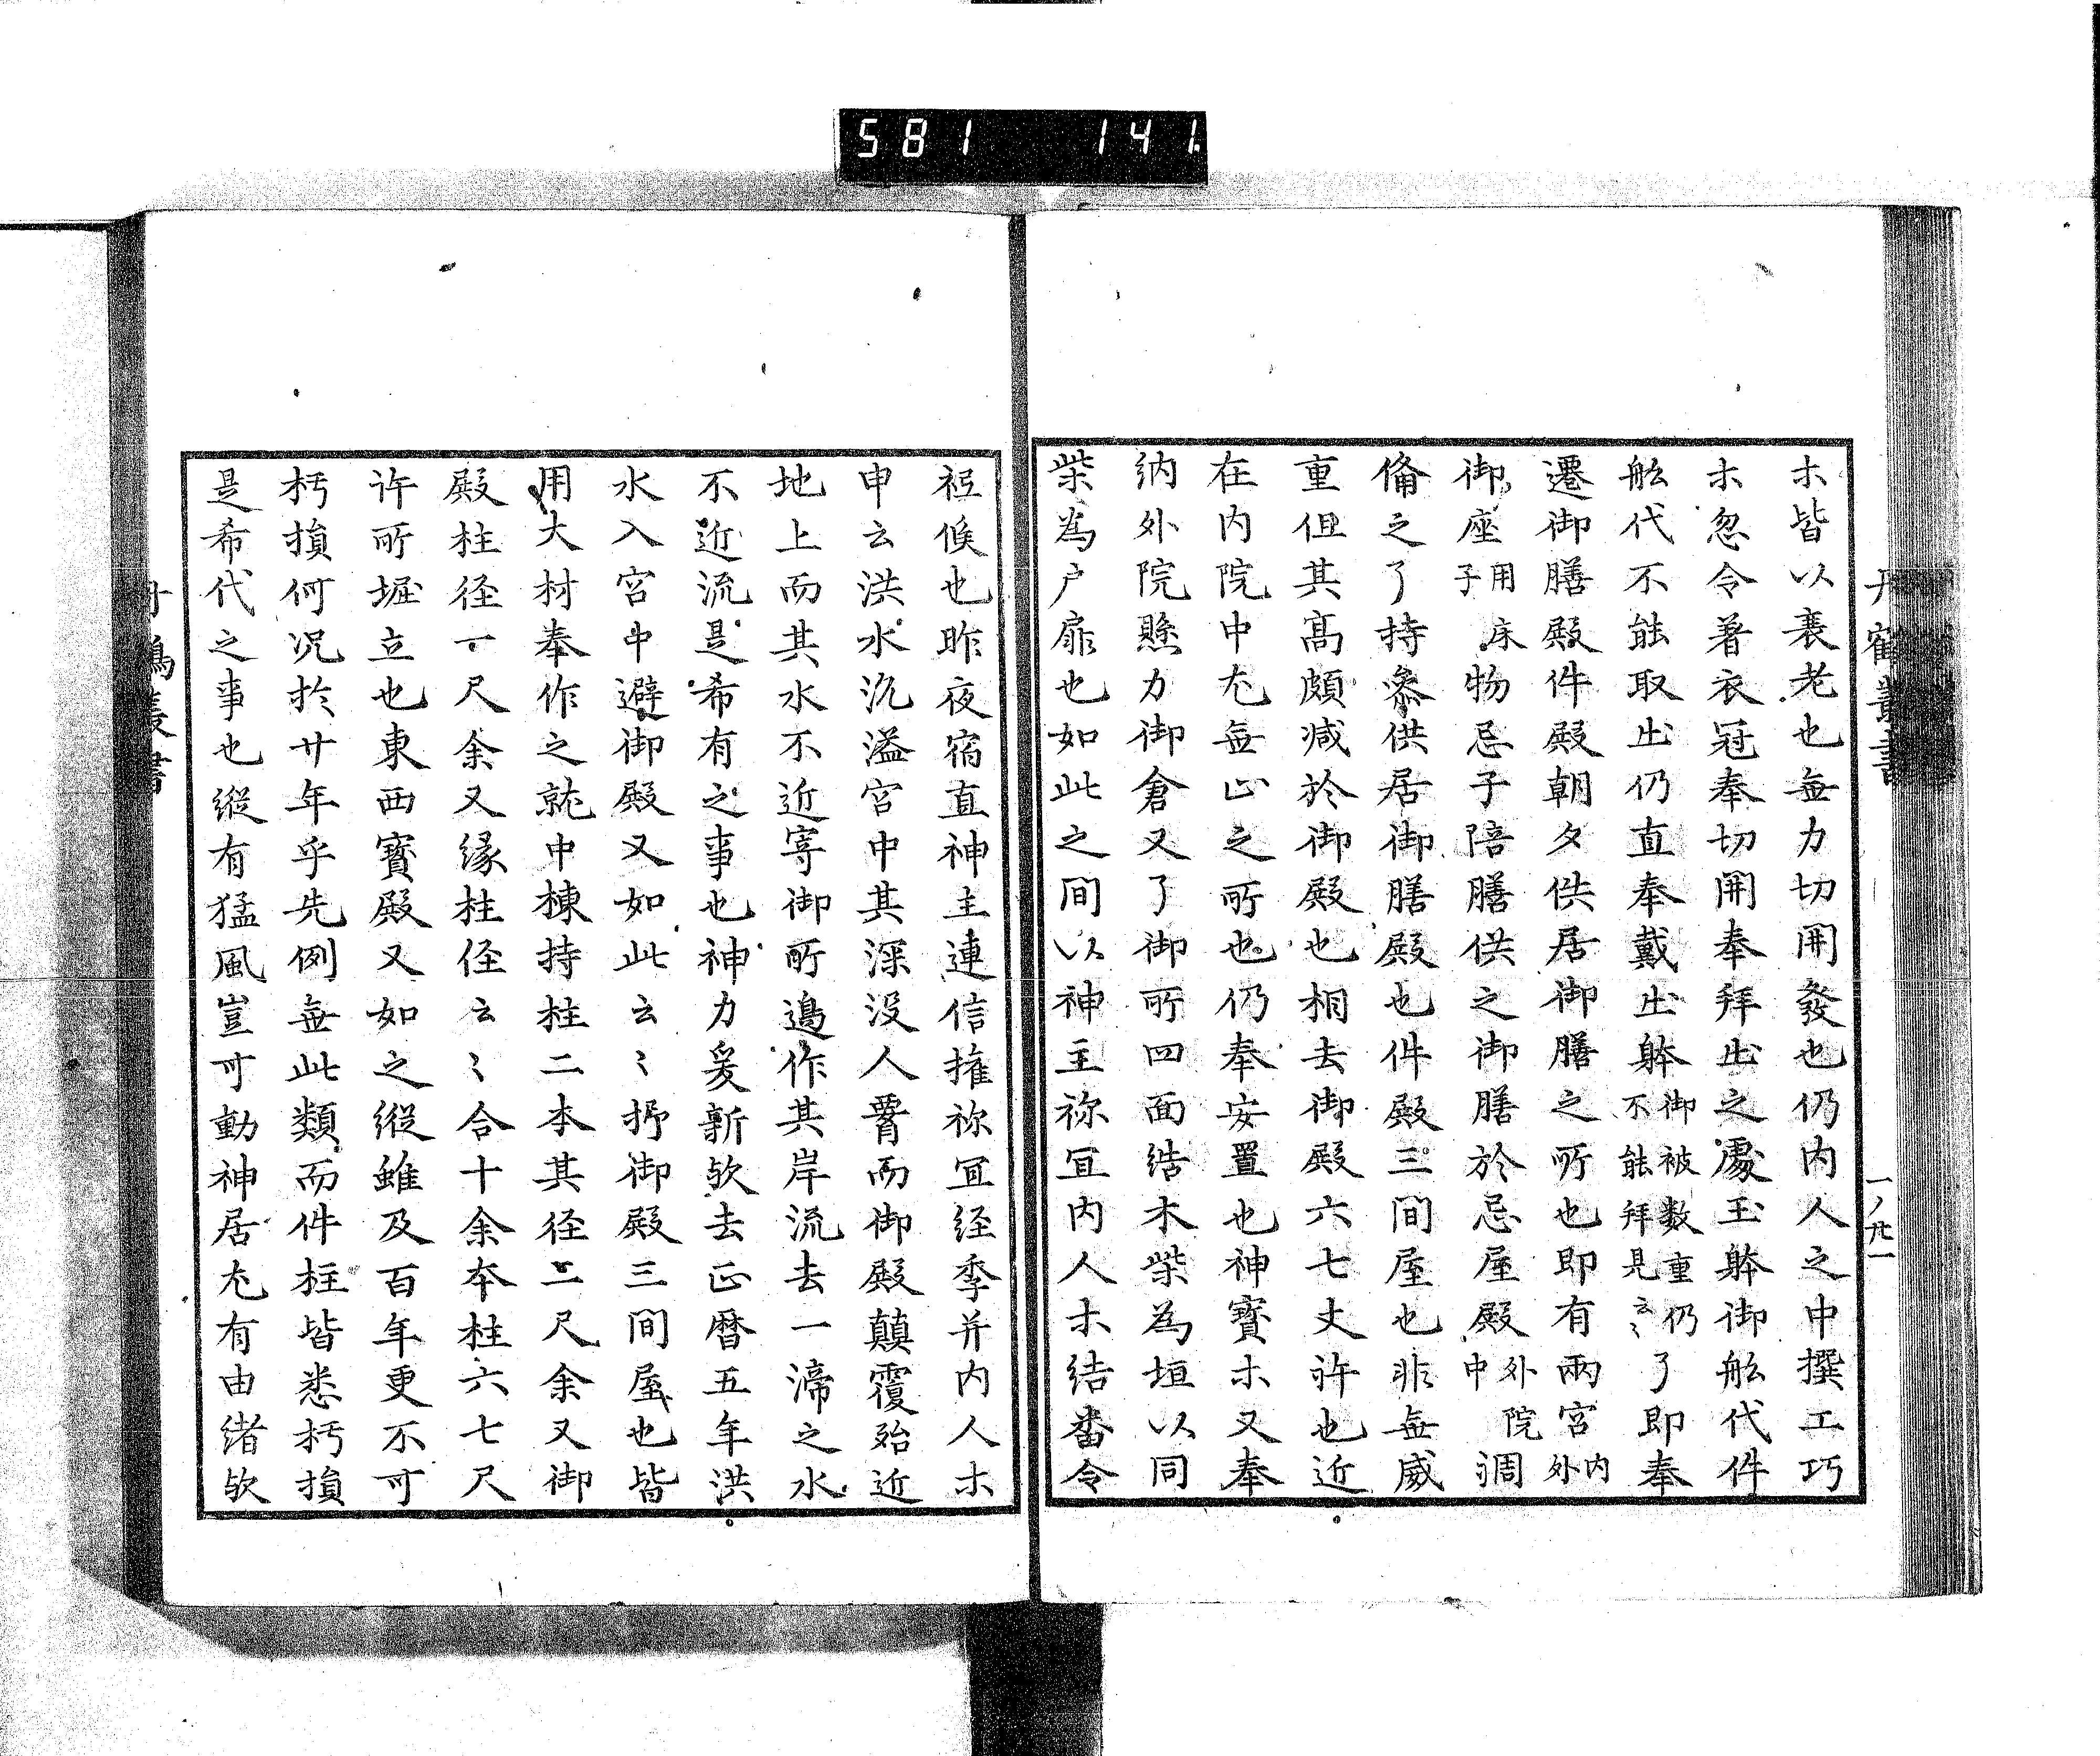 581 141
丹鶴叢書
一ノ廿一
ホ皆以衰老也無力切開發也仍内人之中撰工巧
ホ忽令著衣冠奉切開奉拜出之處玉躰御舩代件
舩代不能取出仍直奉戴出躰御被数重仍不能拜見云〻了即奉
遷御膳殿件殿朝夕供居御膳之所也即有兩宮内外
御座用床子物忌子陪膳供之御膳於忌屋殿外院中調
備之了持參供居御膳殿也件殿三間屋也非無威
重但其髙頗减於御殿也相去御殿六七丈許也近
在内院中尤無止之所也仍奉安置也神寶ホ又奉
納外院懸力御倉又了御所四面結木柴為垣以同
柴為戸扉也如此之間以神主祢冝内人ホ結畨令
祗候也昨夜宿直神主連信擁祢冝経季并内人ホ
申云洪水氾溢宮中其深没人膂而御殿顛覆殆近
地上而其水不近寄御所邊作其岸流去一渧之水
不近流是希有之事也神力爰新欤去正暦五年洪
水入宮中避御殿又如此云〻抑御殿三間屋也皆
用大材奉作之就中棟持柱二本其径二尺余又御
殿柱径一尺余又縁柱径云〻合十余夲柱六七尺
許所堀立也東西寳殿又如之縦雖及百年更不可
朽損何况於廿年乎先例無此類而件柱皆悉朽損
是希代之事也縦有猛風豈可動神居尤有由緒欤